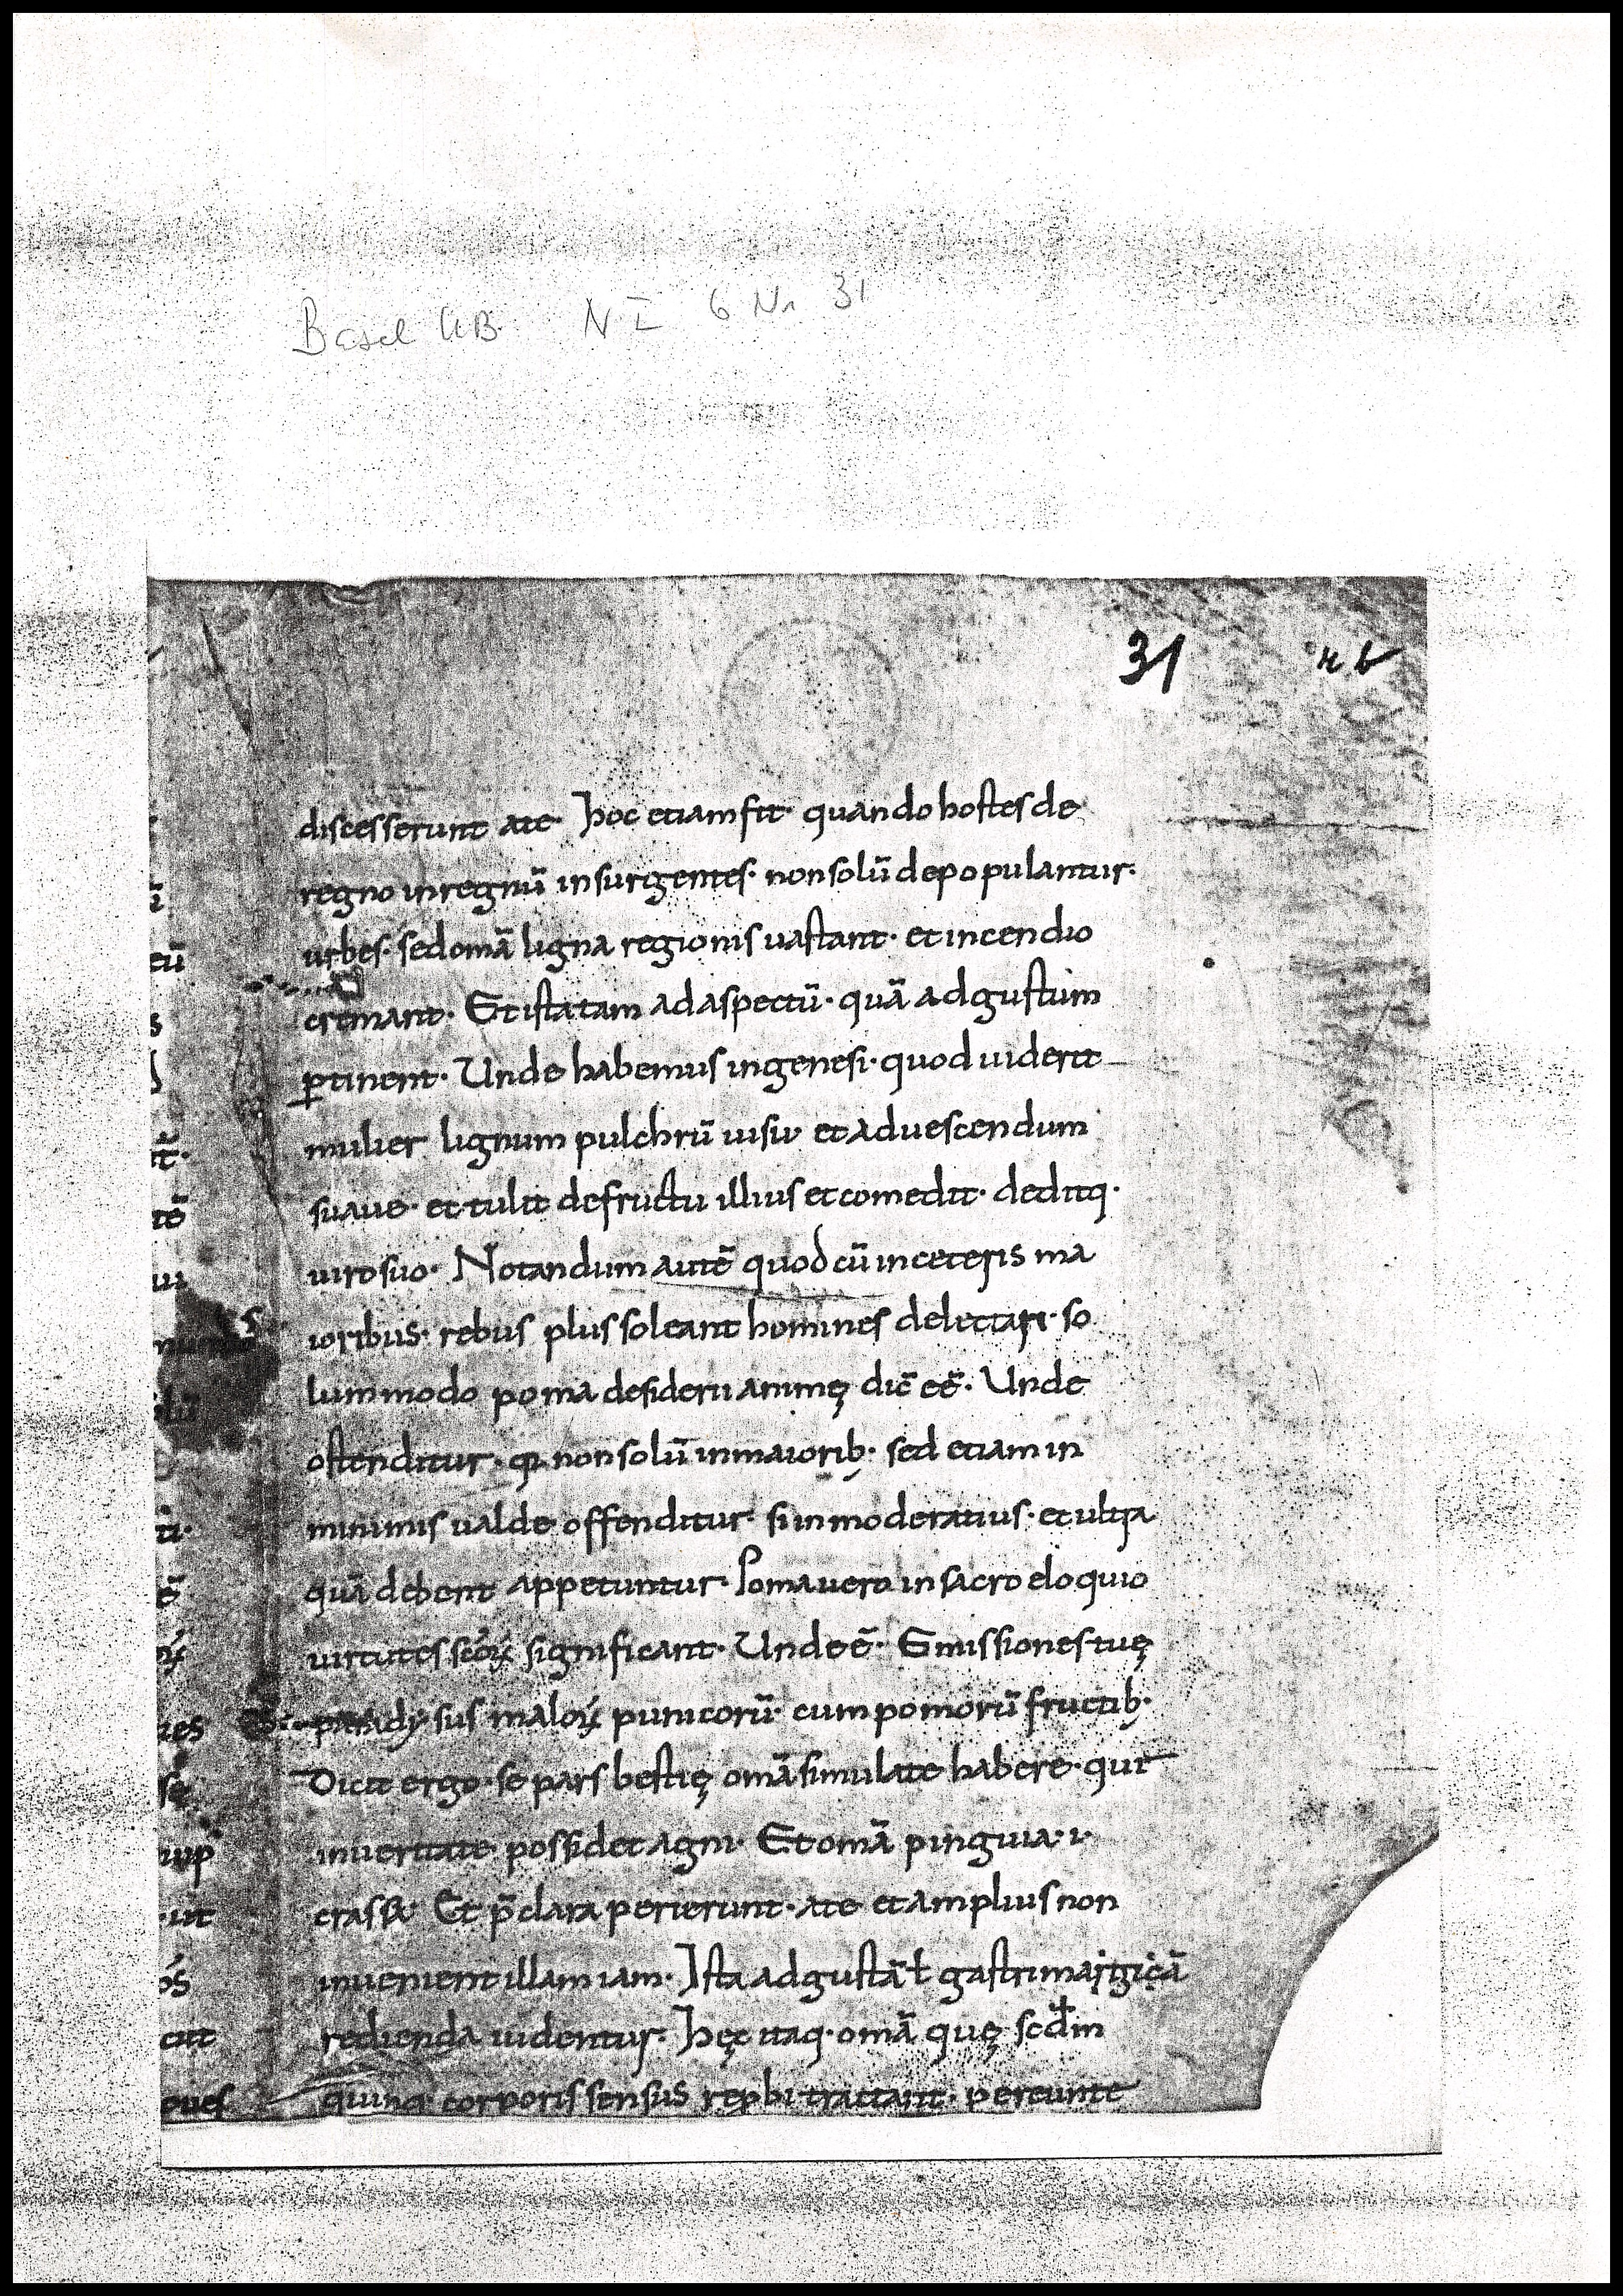 Basel UB. N I 6 Nr 31
31
discesserunt ate· Hoc etiam fit· quando hostes de
regno in regnū insurgentes· non solū depopulantur·
urbes· sed omā ligna regionis uastant· et incendio
cremant· Et ista tam ad aspectū· quā ad gustum
ꝑtinent· Unde habemus in genesi· quod uiderit
mulier lignum pulchrū uisu et ad uescendum
suaue· et tulit de fructu illius et comedit· deditq·
uiro suo· Notandum autē quod cū in ceteris ma
ioribus· rebus plus soleant homines delectari· so
lummodo poma desiderii animę dic̄ eē· Unde
ostenditur· qꝛ non solū in maiorib· sed etiam in
minimis ualde offenditur· si inmoderatius· et ultra
quā debent appetuntur· Poma uero in sacro eloquio
uirtutes sc̄oꝝ significant· Unde ē· Emissiones tuę
paradysus maloꝝ punicorū· cum pomorū fructib·
Dicit ergo· se pars bestię omā simulate habere· que
in ueritate possidet agni· Et omā pinguia· i·
crassa· Et p̄clara perierunt· ate et amplius non
inuenient illam iam· Ista ad gustā ł gastrimargicā
redienda uidentur· Hęc itaq· omā quę scdm
quinq· corporis sensus rep̄bi tractant· pereunte